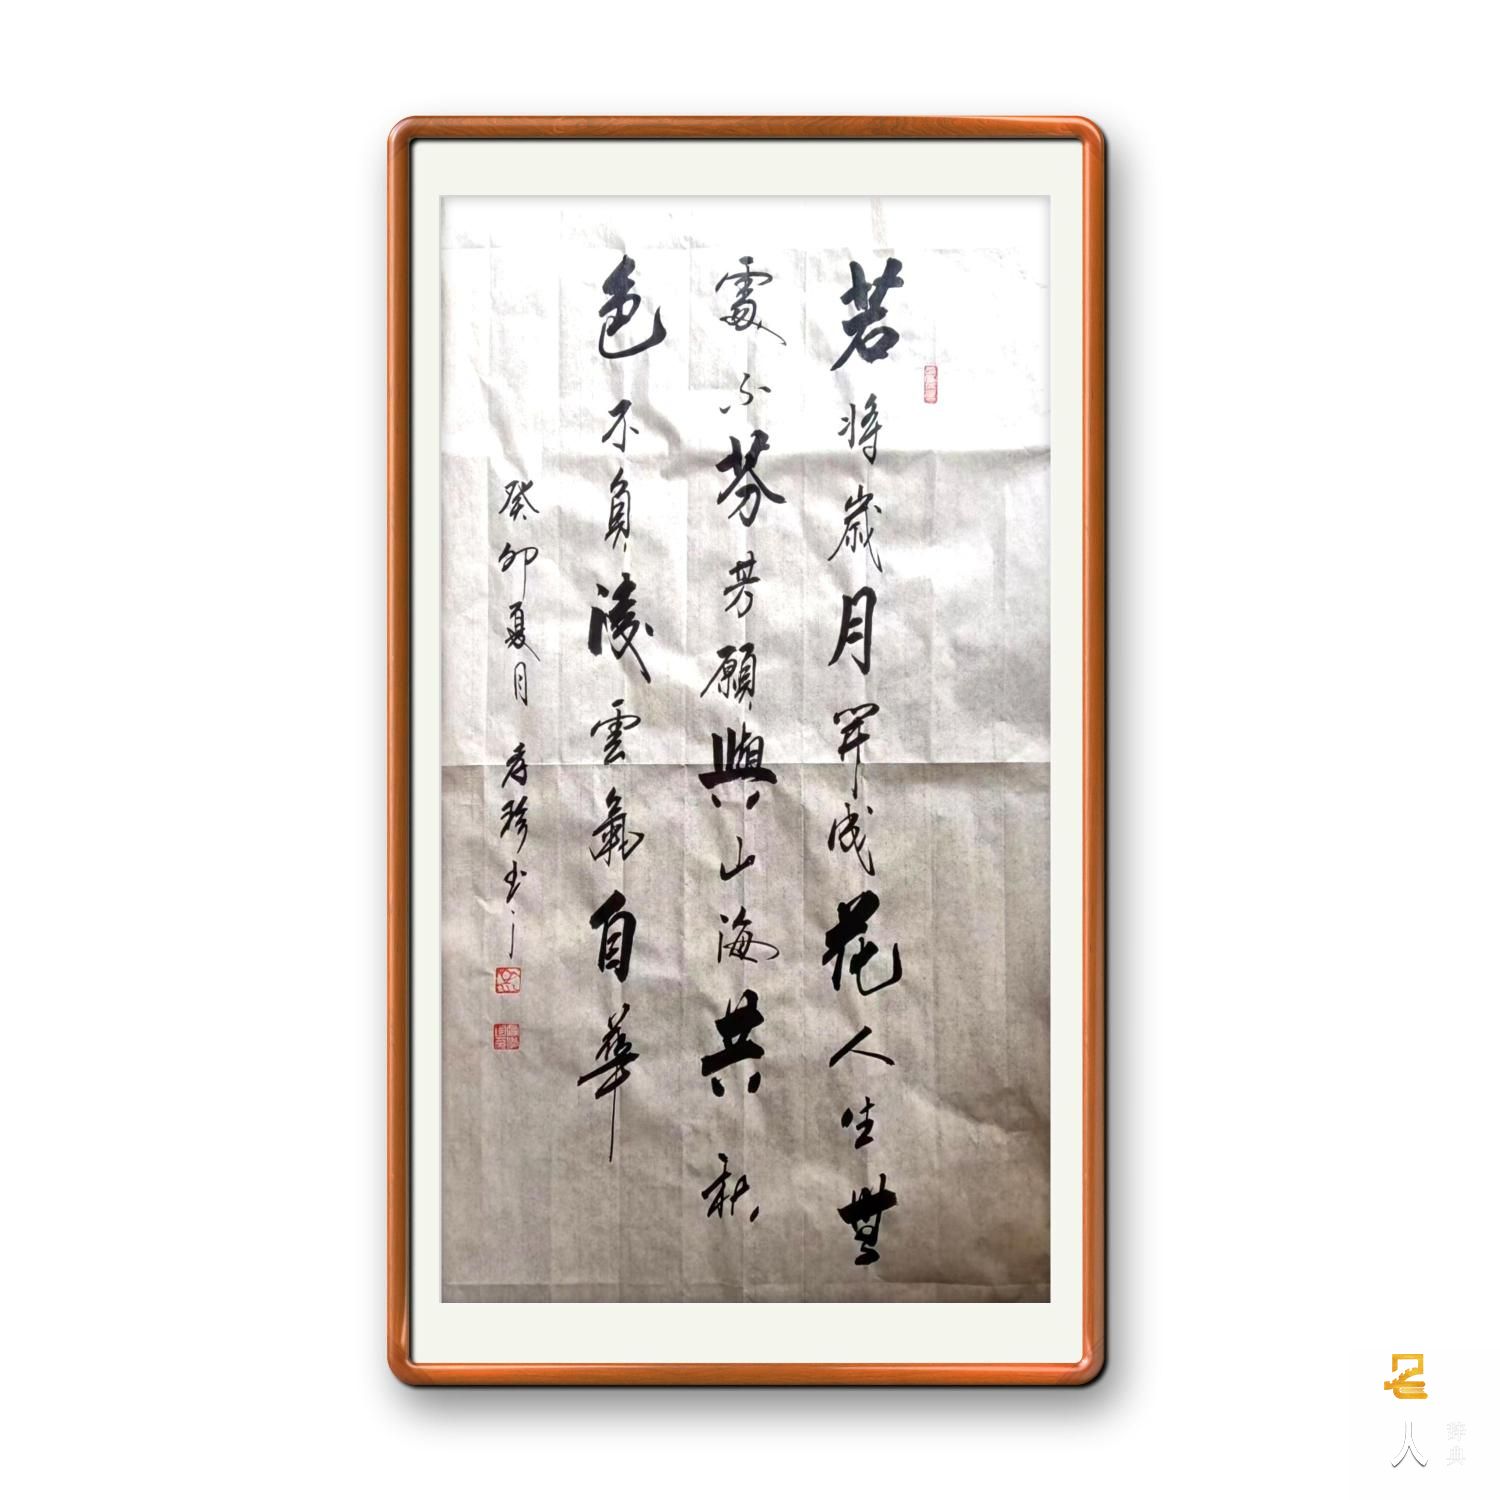 若将歲月開成花人生無
處不芬芳願與山海共秋
色不負淩雲氣自華
癸卯夏月 珍书
人
辞典